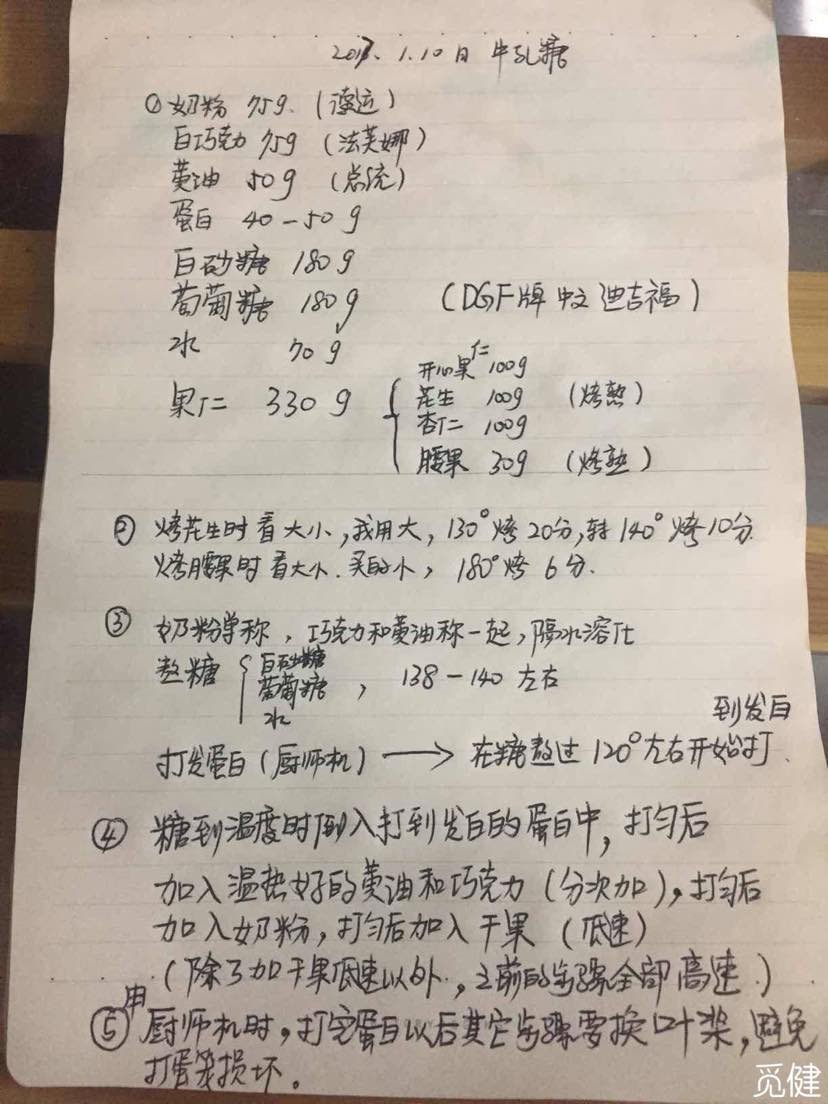 2017.1.10日 牛轧糖
①奶粉 75g. (渎运)
白巧克力 75g (法芙娜)
黄油 50g (总统)
蛋白 40-50g
白砂糖 180g
葡萄糖 180g (DGF牌 中文 迪吉福)
水 70g
果仁 330g
开心果仁 100g
花生 100g (烤熟)
杏仁 100g
腰果 30g (烤熟)
② 烤花生时看大小,我用大,130°烤20分,转140°烤10分.
烤腰果时看大小.买的小,180°烤6分.
③ 奶粉单称,巧克力和黄油称一起,隔水溶化
熬糖 白砂糖 葡萄糖 水 , 138-140左右
打发蛋白(厨师机) → 在糖熬过120°左右开始打. 到发白
④ 糖到温度时倒入打到发白的蛋白中,打匀后
加入温热好的黄油和巧克力(分次加),打匀后
加入奶粉,打匀后加入干果(低速)
(除了加干果低速以外,之前的步骤全部高速.)
⑤用厨师机时,打完蛋白以后其它步骤要换叶桨,避免
打蛋笼损坏。
觅健